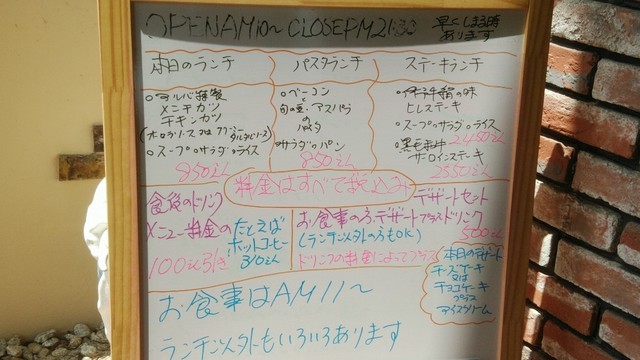 OPENAM10〜 CLOSEPM21:30 早くしまる時
あります
本日のランチ
○アルバ特製
メンチカツ
チキンカツ
○スープ○サラダ○ライス
850えん
パスタランチ
○ベーコン
と
旬の豆・アスパラ
の
パスタ
○サラダ○パン
850えん
ステーキランチ
ヒレステーキ
○スープ○サラダ○ライス
2480えん
○黒毛和牛
サーロインステーキ
2550えん
料金はすべて税込み
食後のドリンク
メニュー料金の
100えん引き
たとえば
ホットコーヒー
310えん
デザートセット
お食事の方、デザートプラスドリンク
500えん
(ランチ以外の方もOK)
ドリンクの料金によってプラス
本日のデザート
チーズケーキ
又は
チョコケーキ
プラス
アイスクリーム
お食事はAM11〜
ランチ以外もいろいろあります